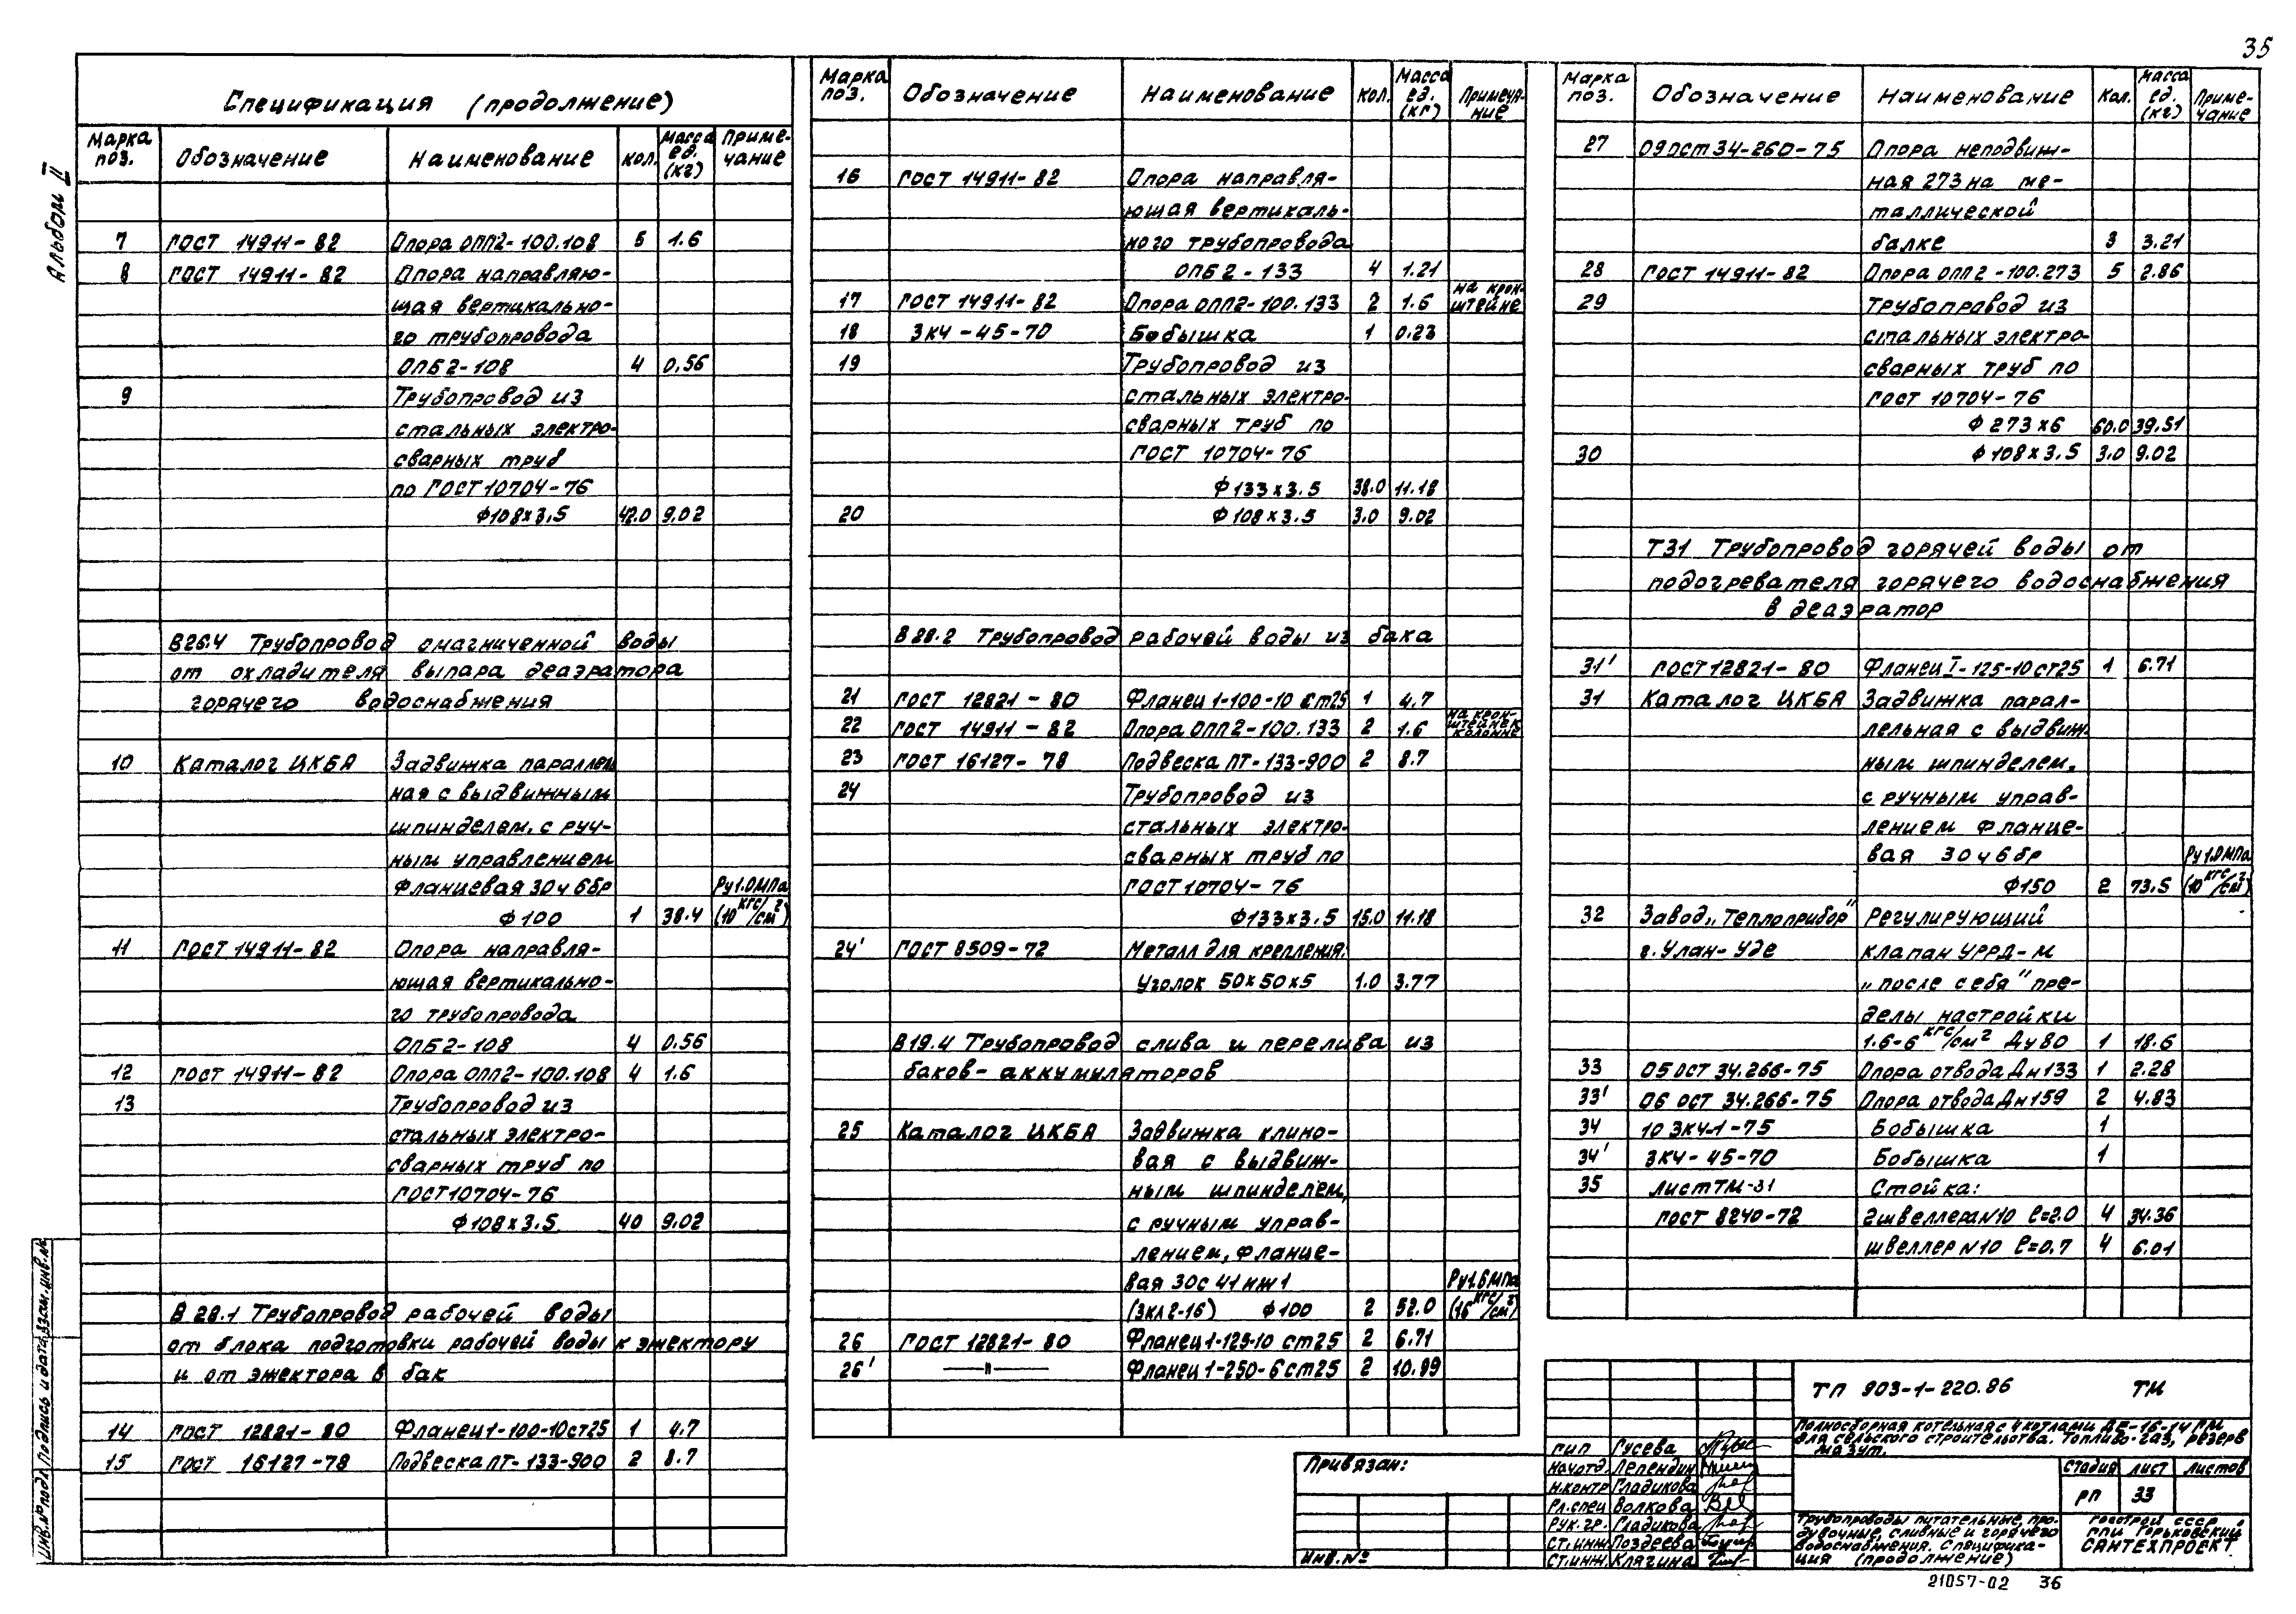 35
Альбом II
Спецификация (продолжение)
Марка поз. Обозначение Наименование кол. Масса ед. (кг) Примечание
7 ГОСТ 14911-82 Опора ОПП2-100.108 5 1.6
8 ГОСТ 14911-82 Опора направляю-
щая вертикально-
го трубопровода
ОПБ2-108 4 0.56
9 Трубопровод из
стальных электро-
сварных труб
по ГОСТ 10704-76
ф108х3.5 42.0 9.02
В26.4 Трубопровод омагниченной воды
от охладителя выпара деаэратора
горячего водоснабжения
10 Каталог ЦКБА Задвижка параллель
ная с выдвижным
шпинделем, с руч-
ным управлением
фланцевая 30ч6бр Ру1.0МПа
ф100 1 38.4 (10 кгс/см²)
11 ГОСТ 14911-82 Опора направля-
ющая вертикально-
го трубопровода
ОПБ2-108 4 0.56
12 ГОСТ 14911-82 Опора ОПП2-100.108 4 1.6
13 Трубопровод из
стальных электро-
сварных труб по
ГОСТ 10704-76
ф108х3.5 40 9.02
В 28.1 Трубопровод рабочей воды
от блока подготовки рабочей воды к эжектору
и от эжектора в бак
14 ГОСТ 12821-80 Фланец 1-100-10 ст25 1 4.7
15 ГОСТ 16127-78 Подвеска ПТ-133-900 2 8.7
Марка поз. Обозначение Наименование кол. Масса ед. (кг) Примечание
16 ГОСТ 14911-82 Опора направля-
ющая вертикаль-
ного трубопровода
ОПБ2-133 4 1.21
17 ГОСТ 14911-82 Опора ОПП2-100.133 2 1.6 на кронштейне
18 ЗК4-45-70 Бобышка 1 0.23
19 Трубопровод из
стальных электро-
сварных труб по
ГОСТ 10704-76
ф133х3.5 38.0 11.18
20 ф108х3.5 3.0 9.02
В28.2 Трубопровод рабочей воды из бака
21 ГОСТ 12821-80 Фланец 1-100-10 Ст25 1 4.7
22 ГОСТ 14911-82 Опора ОПП2-100.133 2 1.6 на кронштейне к колонне
23 ГОСТ 16127-78 Подвеска ПТ-133-900 2 8.7
24 Трубопровод из
стальных электро-
сварных труб по
ГОСТ 10704-76
ф133х3.5 15.0 11.18
24' ГОСТ 8509-72 Металл для крепления:
Уголок 50х50х5 1.0 3.77
В19.4 Трубопровод слива и перелива из
баков-аккумуляторов
25 Каталог ЦКБА Задвижка клино-
вая с выдвиж-
ным шпинделем,
с ручным управ-
лением, фланце-
вая 30с41нж1 Ру1.6МПа
(ЗКЛ2-16) ф100 2 52.0 (16 кгс/см²)
26 ГОСТ 12821-80 Фланец 1-125-10 ст25 2 6.71
26' —"— Фланец 1-250-6 ст25 2 10.99
Марка поз. Обозначение Наименование Кол. Масса ед. (кг) Примечание
27 09 ОСТ 34-260-75 Опора неподвиж-
ная 273 на ме-
таллической
балке 3 3.21
28 ГОСТ 14911-82 Опора ОПП2-100.273 5 2.86
29 Трубопровод из
стальных электро-
сварных труб по
ГОСТ 10704-76
ф273х6 60.0 39.51
30 ф108х3.5 3.0 9.02
Т31 Трубопровод горячей воды от
подогревателя горячего водоснабжения
в деаэратор
31' ГОСТ 12821-80 Фланец I-125-10 ст25 1 6.71
31 Каталог ЦКБА Задвижка парал-
лельная с выдвиж-
ным шпинделем,
с ручным управ-
лением фланце-
вая 30ч6бр Ру1.0МПа
ф150 2 73.5 (10 кгс/см²)
32 Завод „Теплоприбор" Регулирующий
г. Улан-Уде клапан УРРД-М
„после себя" пре-
делы настройки
1.6-6 кгс/см² Ду80 1 18.6
33 05 ОСТ 34.266-75 Опора отвода Дн133 1 2.28
33' 06 ОСТ 34.266-75 Опора отвода Дн159 2 4.83
34 10 ЗК4-1-75 Бобышка 1
34' ЗК4-45-70 Бобышка 1
35 Лист ТМ-31 Стойка:
ГОСТ 8240-72 2швеллера N10 ℓ=2.0 4 34.36
швеллер N10 ℓ=0.7 4 6.01
Привязан:
Инв. №
ТП 903-1-220.86 ТМ
Полносборная котельная с 4 котлами ДЕ-16-14ГМ
для сельского строительства. Топливо-газ, резерв
мазут.
ГИП Гусева
Нач.отд. Лепендин
Н.контр Гладикова
Гл.спец Волкова
Рук.гр. Гладикова
Ст.инж Поздеева
Ст.инж. Клягина
Стадия Лист Листов
РП 33
Трубопроводы питательные, про-
дувочные, сливные и горячего
водоснабжения. Специфика-
ция (продолжение)
Госстрой СССР
ГПИ Горьковский
САНТЕХПРОЕКТ
21057-02 36
Инв.№ подл. Подпись и дата Взам.инв.№